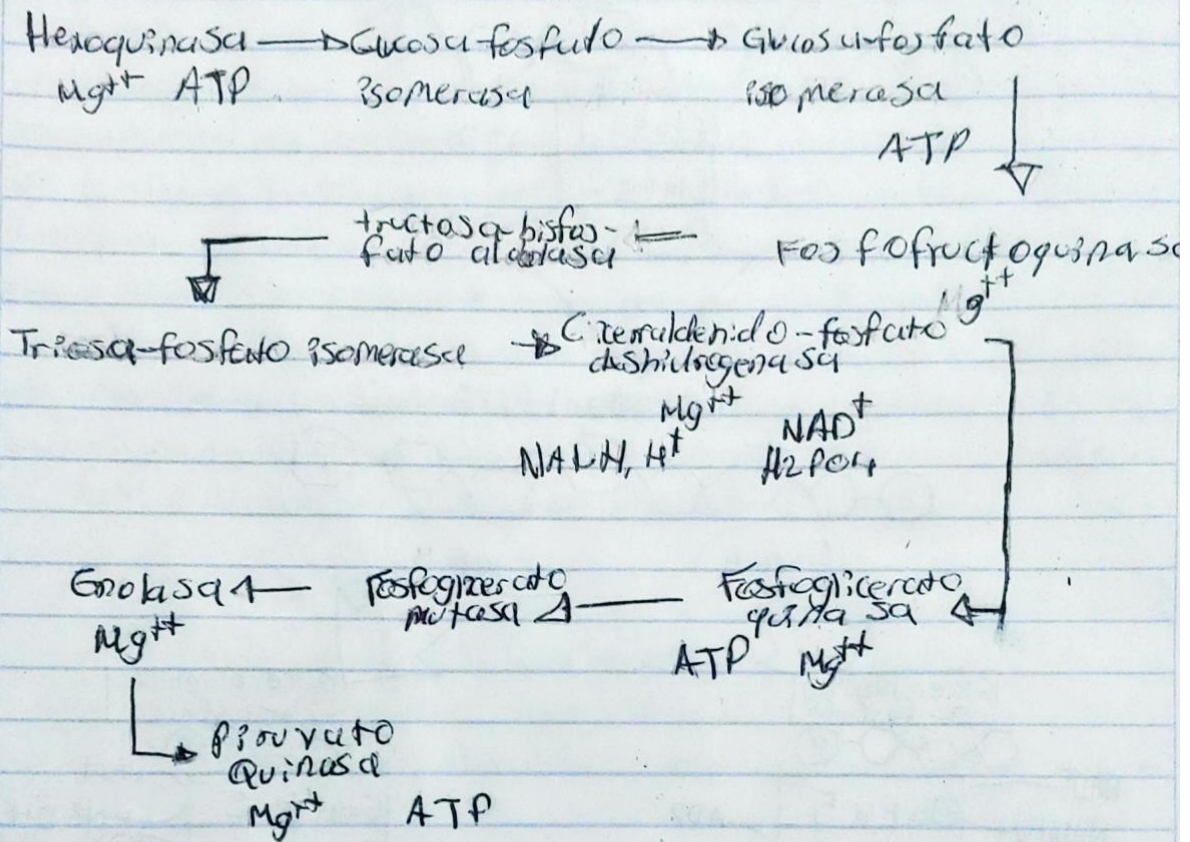 Hexoquinasa → Glucosa-fosfato → Glucosa-fosfato
Mg++ ATP isomerasa isomerasa
ATP
fructosa-bisfos-
fato aldolasa
Fosfofructoquinasa
Mg++
Triosa-fosfato isomerasa → Giceraldehido-fosfato
dashidrogenasa
Mg++ NAD+
NADH, H+ H2PO4
Enolasa Fosfoglicerato Fosfoglicerato
Mg++ mutasa quinasa
ATP Mg++
Piruvato
Quinasa
Mg++ ATP